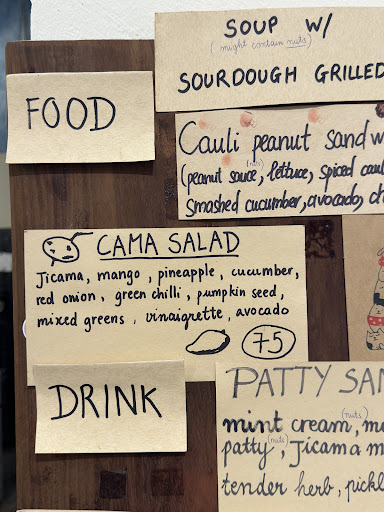 FOOD
SOUP W/
(might contain nuts)
SOURDOUGH GRILLED
Cauli peanut sand
(peanut sauce, (nuts) lettuce, spiced
smashed cucumber, avocado,
CAMA SALAD
Jicama, mango, pineapple, cucumber,
red onion, green chilli, pumpkin seed,
mixed greens, vinaigrette, avocado
75
DRINK
PATTY SAN
mint cream, (nuts)
patty, (nuts) Jicama
tender herb, pickl